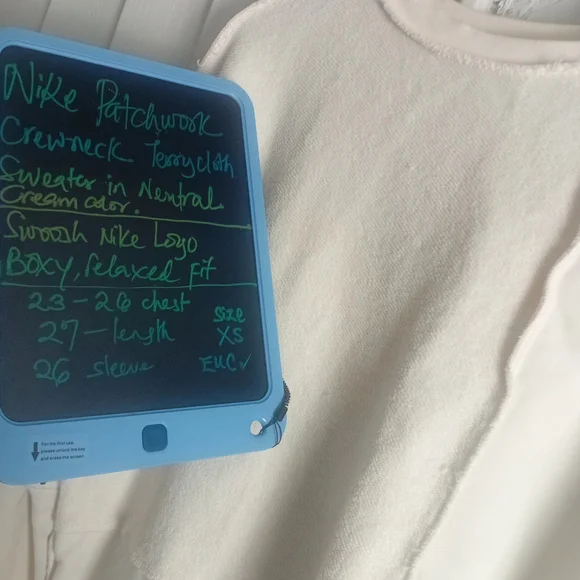 Nike Patchwork
Crewneck Terrycloth
Sweater in Neutral
Cream color.
Swoosh Nike Logo
Boxy, relaxed fit
23-26 chest
27-length
26 sleeve
Size
XS
EUC✓
For the first use
please unlock the key
and erase the screen